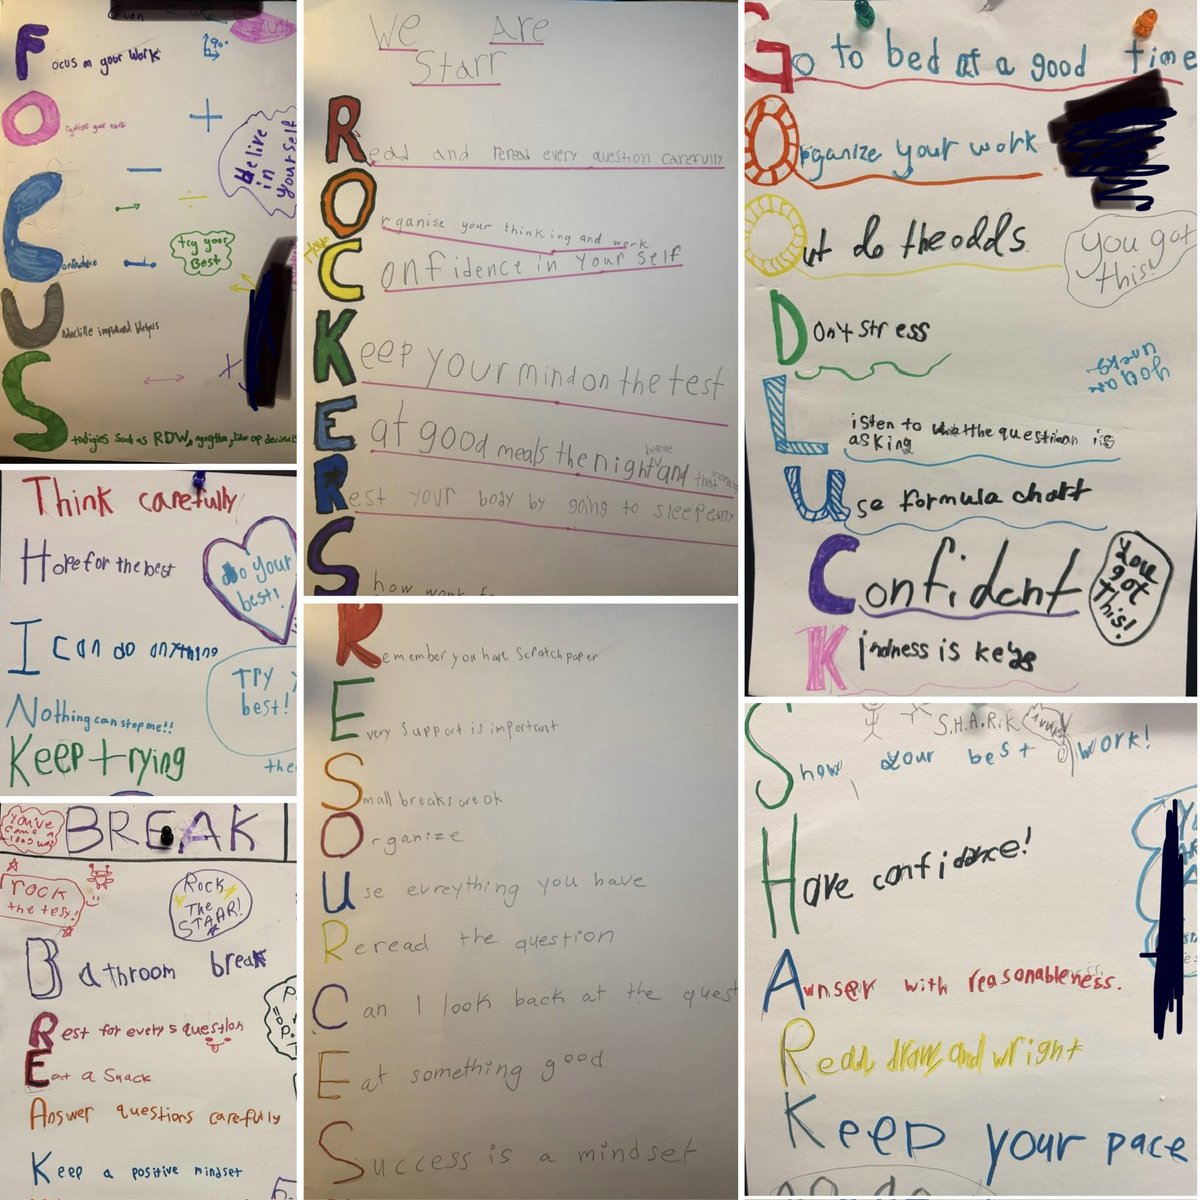 Focus on your work
90°
Organize your work
Believe
in
yourself
try your
Best
Confidence
Underline important
Stratigies such as RDW,
We Are
Starr
Read and reread every question carefully
Organise your thinking and work
Have
Confidence in your self
Keep your mind on the test
Eat good meals the night before and that morning
Rest your body by going to sleep early
Show work
Go to bed at a good time
Organize your work
Out do the odds
You got
this!
Dont stress
you are
Listen to what the question is
asking
Use formula chart
Confident
You
got
This!
Kindness is key
Think carefully
Hope for the best
do your
best!
I can do anything
Nothing can stop me!!
TRY
best!
Keep trying
the
Remember you have Scratch paper
Every support is important
Small breaks are ok
Organize
Use evreything you have
Reread the question
Can I look back at the quest
Eat something good
Success is a mindset
S.H.A.R.K
Show your best work!
Have confidence!
Awnser with reasonableness.
Read, draw, and wright
Keep your pace
You've
come a
long way
BREAK
rock
the test!
Rock
The
STAAR!
Bathroom break
Rest for every 5 question
Eat a Snack
Answer questions carefully
Keep a positive mindset